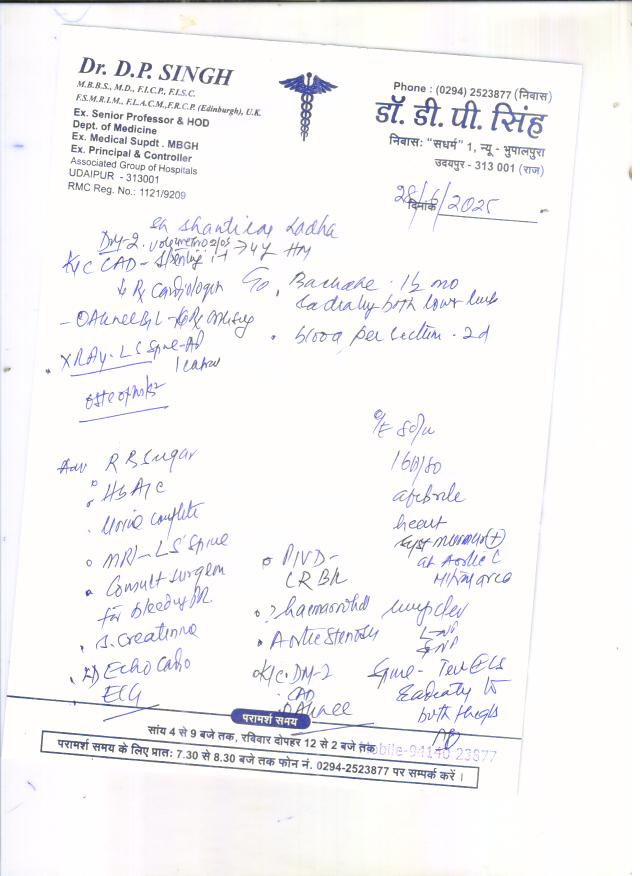 Dr. D.P. SINGH
M.B.B.S., M.D., F.I.C.P., F.I.S.C.
F.S.M.R.I.M., F.L.A.C.M., F.R.C.P. (Edinburgh), U.K.
Ex. Senior Professor & HOD
Dept. of Medicine
Ex. Medical Supdt. MBGH
Ex. Principal & Controller
Associated Group of Hospitals
UDAIPUR - 313001
RMC Reg. No.: 1121/9209
Phone : (0294) 2523877 (निवास)
डॉ. डी. पी. सिंह
निवास: "सधर्म" 1, न्यू - भुपालपुरा
उदयपुर - 313 001 (राज)
दिनांक 28/6/2025
Shantilal Ladha
DM-2
K/c CAD -
Rx Cardiologist
- OA Knee B/L -
• XRAY - LS Spine - AP
Lateral
C/o • Backache - 1½ mo
Radiating both lower limb
• blood per rectum - 2d
Adv RBSugar
• HbA1c
• Urine complete
• MRI - LS Spine
• Consult surgeon
for bleeding PR
• S. Creatinine
• 2D Echo Cardio
ECG
• PIVD -
• ? haemorrhoid
• Aortic Stenosis
• K/c - DM-2
• CAD
• OA Knee
O/E 80/m
160/80
afebrile
heart
syst murmur (+)
at Aortic &
Mitral area
Spine - Ten LS
Radiating to
both thighs
परामर्श समय
सांय 4 से 9 बजे तक, रविवार दोपहर 12 से 2 बजे तक
Mobile-94140 23877
परामर्श समय के लिए प्रात: 7.30 से 8.30 बजे तक फोन नं. 0294-2523877 पर सम्पर्क करें ।